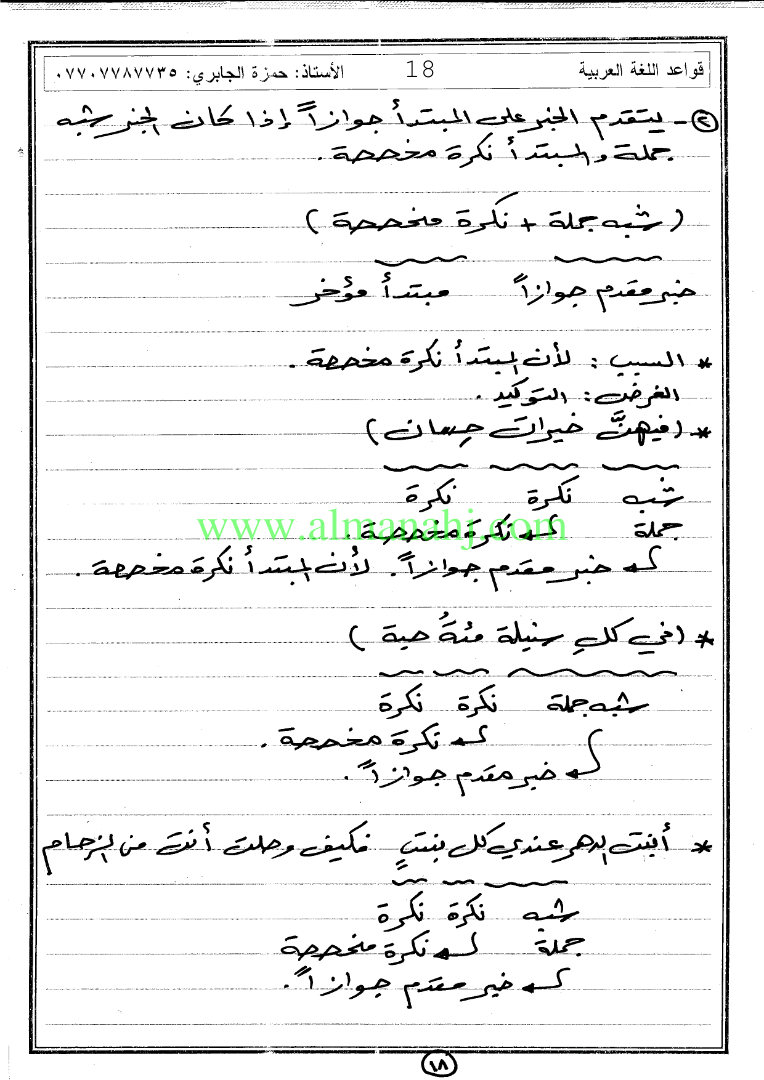 قواعد اللغة العربية 18 الأستاذ: حمزة الجابري: ٠٧٧٠٧٧٨٧٧٣٥
٢- يتقدم الخبر على المبتدأ جوازاً إذا كان الخبر شبه
جملة والمبتدأ نكرة مخصصة.
(شبه جملة + نكرة مخصصة)
خبر مقدم جوازاً مبتدأ مؤخر
* السبب: لأن المبتدأ نكرة مخصصة.
الغرض: التوكيد.
* (فيهنَّ خيرات حِسان)
شبه نكرة نكرة
جملة نكرة مخصصة.
www.almanahj.com
خبر مقدم جوازاً. لأن المبتدأ نكرة مخصصة.
* (في كلِ سنبلة مئةُ حبة)
شبه جملة نكرة نكرة
نكرة مخصصة.
خبر مقدم جوازاً.
* أبنت الدهر عندي كل بنتٍ فكيف وصلت أنت من الزحام
شبه نكرة نكرة
جملة نكرة مخصصة
خبر مقدم جوازاً.
١٨